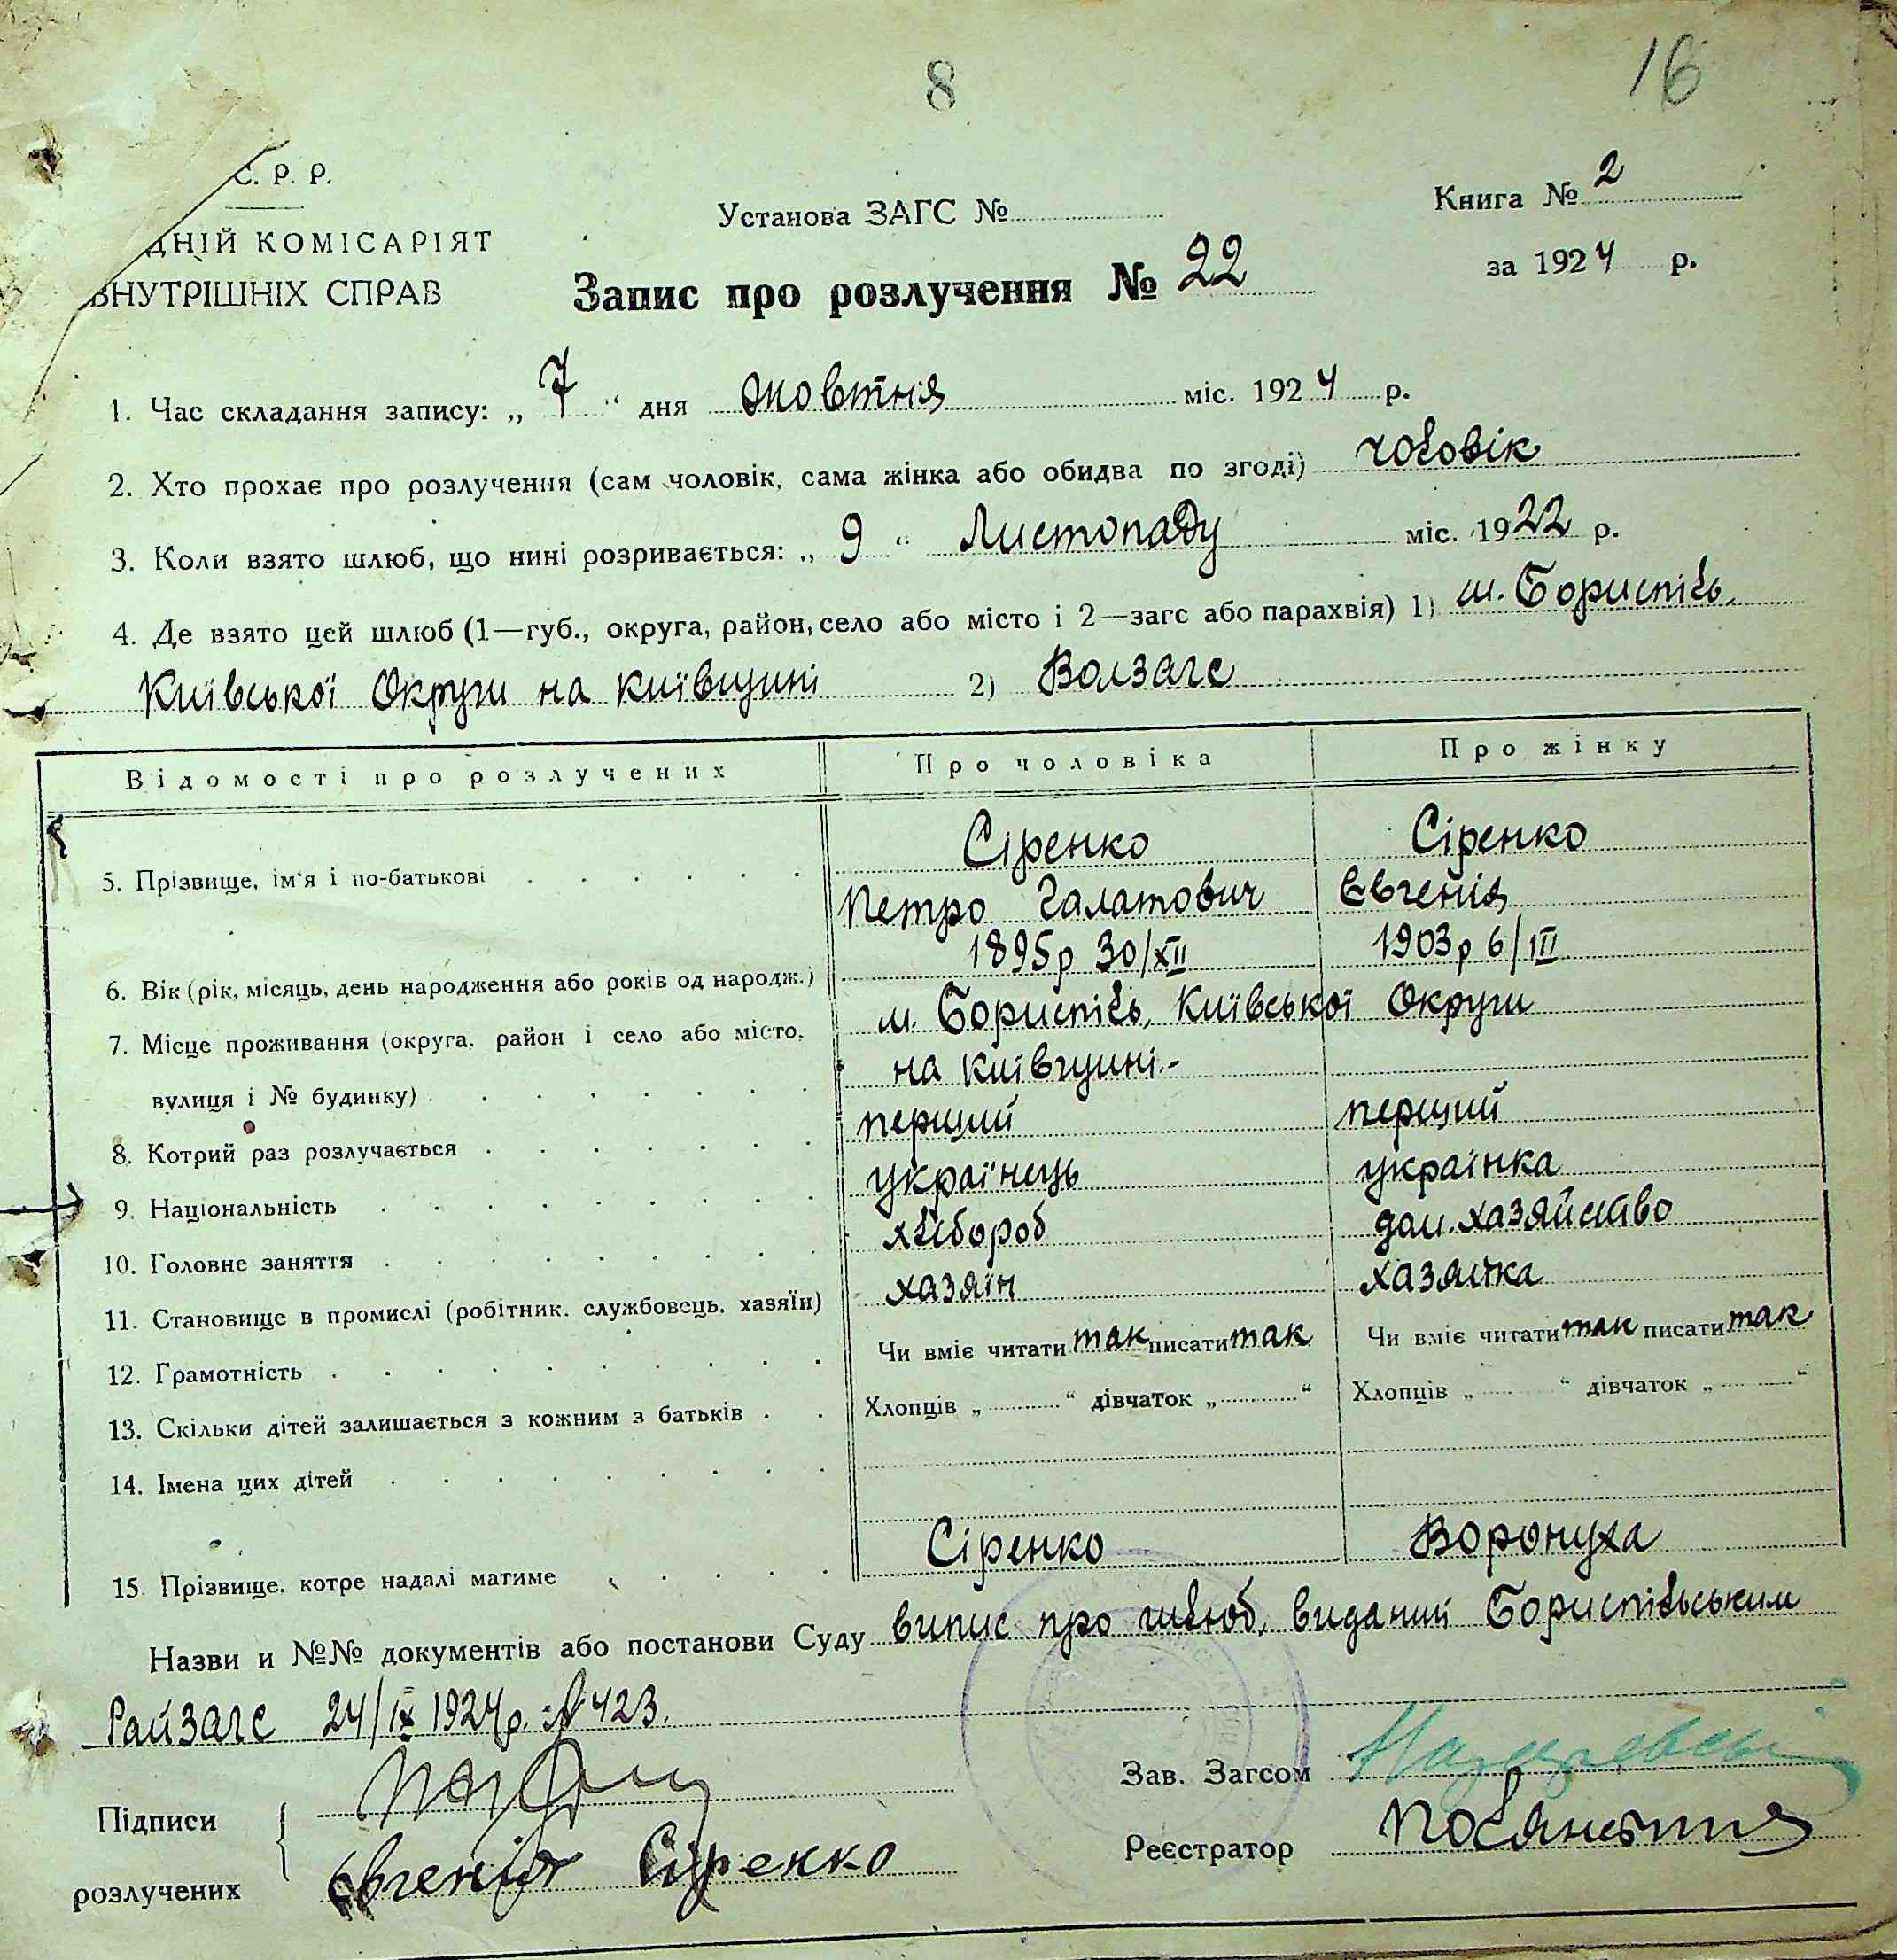 8
16
С. Р. Р.
ДНІЙ КОМІСАРІЯТ
ВНУТРІШНІХ СПРАВ
Установа ЗАГС №
Книга № 2
за 1924 р.
Запис про розлучення № 22
1. Час складання запису: „ 7 “ дня жовтня міс. 1924 р.
2. Хто прохає про розлучення (сам чоловік, сама жінка або обидва по згоді) чоловік
3. Коли взято шлюб, що нині розривається: „ 9 “ Листопаду міс. 1922 р.
4. Де взято цей шлюб (1—губ., округа, район, село або місто і 2—загс або парахвія) 1) м. Бориспіль,
Київської Округи на Київщині 2) Волзагс
Відомості про розлучених Про чоловіка Про жінку
Сіренко Сіренко
5. Прізвище, ім'я і по-батькові Петро Галатович Євгенія
6. Вік (рік, місяць, день народження або років од народж.) 1895р 30/XII 1903р 6/III
7. Місце проживання (округа, район і село або місто, м. Бориспіль, Київської Округи
вулиця і № будинку) на Київщині.-
8. Котрий раз розлучається перший перший
9. Національність українець українка
10. Головне заняття хлібороб дом. хазяйство
11. Становище в промислі (робітник, службовець, хазяїн) хазяїн хазяйка
12. Грамотність Чи вміє читати так писати так Чи вміє читати так писати так
13. Скільки дітей залишається з кожним з батьків Хлопців „ “ дівчаток „ “ Хлопців „ “ дівчаток „ “
14. Імена цих дітей
15. Прізвище, котре надалі матиме Сіренко Воронуха
Назви и №№ документів або постанови Суду випис про шлюб, виданий Бориспільським
Райзагс 24/IX 1924р. № 423.
Підписи
розлучених
Євгенія Сіренко
Зав. Загсом
Реєстратор